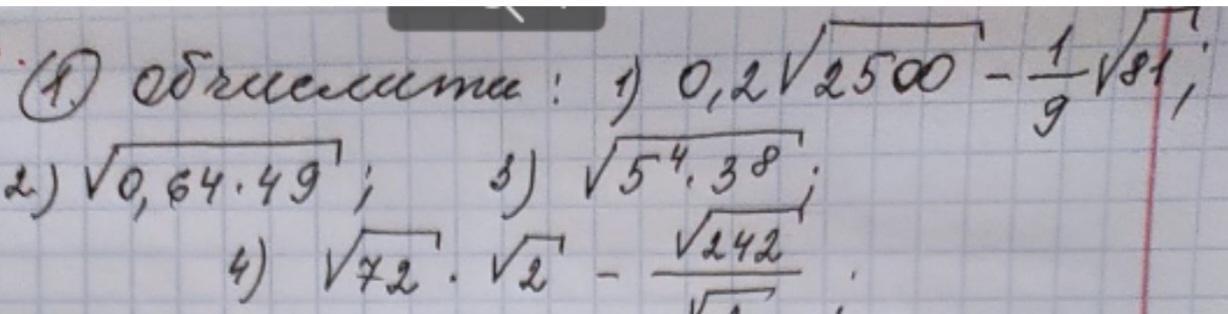 ① обчислити: 1) 0,2√2500 - 1/9 √81;
2) √0,64·49; 3) √5⁴·3⁸;
4) √72 · √2 - √242